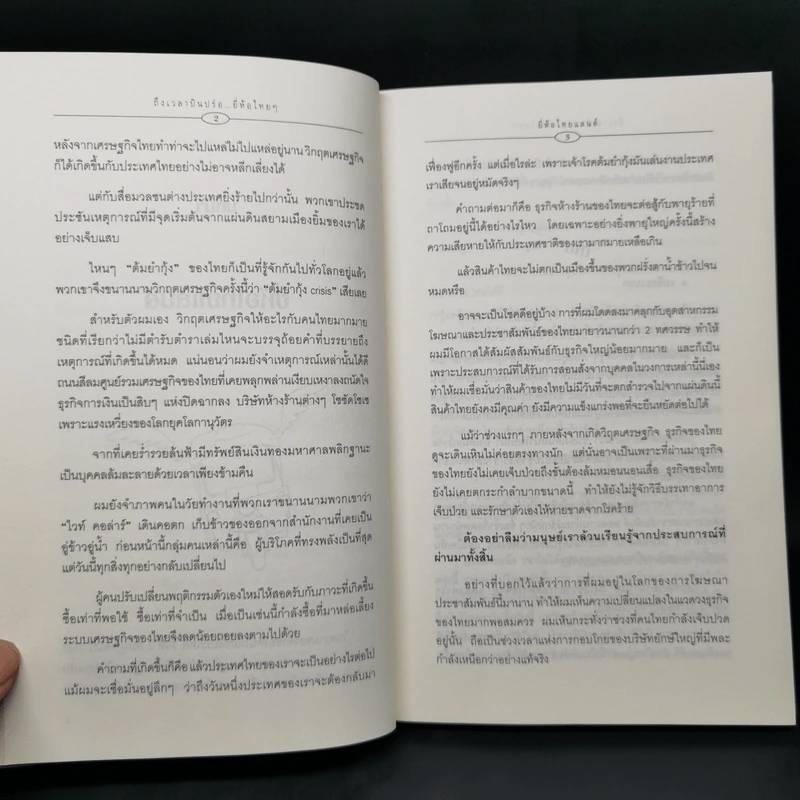 ถึงเวลาบินปร๋อ...ยี่ห้อไทยๆ
2
หลังจากเศรษฐกิจไทยทำท่าจะไปแหล่ไม่ไปแหล่อยู่นาน วิกฤตเศรษฐกิจ
ก็ได้เกิดขึ้นกับประเทศไทยอย่างไม่อาจหลีกเลี่ยงได้
แต่กับสื่อมวลชนต่างประเทศยิ่งร้ายไปกว่านั้น พวกเขาประชด
ประชันเหตุการณ์ที่มีจุดเริ่มต้นจากแผ่นดินสยามเมืองยิ้มของเราได้
อย่างเจ็บแสบ
ไหนๆ “ต้มยำกุ้ง” ของไทยก็เป็นที่รู้จักกันไปทั่วโลกอยู่แล้ว
พวกเขาจึงขนานนามวิกฤตเศรษฐกิจครั้งนี้ว่า “ต้มยำกุ้ง crisis” เสียเลย
สำหรับตัวผมเอง วิกฤตเศรษฐกิจให้อะไรกับคนไทยมากมาย
ชนิดที่เรียกว่าไม่มีตำรับตำราเล่มไหนจะบรรจุถ้อยคำที่บรรยายถึง
เหตุการณ์ที่เกิดขึ้นได้หมด แน่นอนว่าผมยังจำเหตุการณ์เหล่านั้นได้ดี
ถนนสีลมศูนย์รวมเศรษฐกิจของไทยที่เคยพลุกพล่านเงียบเหงาลงถนัดใจ
ธุรกิจการเงินเป็นสิบๆ แห่งปิดฉากลง บริษัทห้างร้านต่างๆ โซซัดโซเซ
เพราะแรงเหวี่ยงของโลกยุคโลกานุวัตร
จากที่เคยร่ำรวยล้นฟ้ามีทรัพย์สินเงินทองมหาศาลพลิกฐานะ
เป็นบุคคลล้มละลายด้วยเวลาเพียงข้ามคืน
ผมยังจำภาพคนในวัยทำงานที่พวกเราขนานนามพวกเขาว่า
“ไวท์ คอล่าร์” เดินคอตก เก็บข้าวของออกจากสำนักงานที่เคยเป็น
อู่ข้าวอู่น้ำ ก่อนหน้านี้กลุ่มคนเหล่านี้คือ ผู้บริโภคที่ทรงพลังเป็นที่สุด
แต่วันนี้ทุกสิ่งทุกอย่างกลับเปลี่ยนไป
ผู้คนปรับเปลี่ยนพฤติกรรมตัวเองใหม่ให้สอดรับกับภาวะที่เกิดขึ้น
ซื้อเท่าที่พอใช้ ซื้อเท่าที่จำเป็น เมื่อเป็นเช่นนี้กำลังซื้อที่มาหล่อเลี้ยง
ระบบเศรษฐกิจของไทยจึงลดน้อยถอยลงตามไปด้วย
คำถามที่เกิดขึ้นก็คือ แล้วประเทศไทยของเราจะเป็นอย่างไรต่อไป
แม้ผมจะเชื่อมั่นอยู่ลึกๆ ว่าถึงวันหนึ่งประเทศของเราจะต้องกลับมา
ยี่ห้อไทยแลนด์
3
เฟื่องฟูอีกครั้ง แต่เมื่อไรล่ะ เพราะเจ้าโรคต้มยำกุ้งมันเล่นงานประเทศ
เราเสียจนอยู่หมัดจริงๆ
คำถามต่อมาก็คือ ธุรกิจห้างร้านของไทยจะต่อสู้กับพายุร้ายที่
ถาโถมอยู่นี้ได้อย่างไรไหว โดยเฉพาะอย่างยิ่งพายุใหญ่ครั้งนี้สร้าง
ความเสียหายให้กับประเทศชาติของเรามากมายเหลือเกิน
แล้วสินค้าไทยจะไม่ตกเป็นเมืองขึ้นของพวกฝรั่งตาน้ำข้าวไปจน
หมดหรือ
อาจจะเป็นโชคดีอยู่บ้าง การที่ผมโดดลงมาคลุกกับอุตสาหกรรม
โฆษณาและประชาสัมพันธ์ของไทยมายาวนานกว่า 2 ทศวรรษ ทำให้
ผมมีโอกาสได้สัมผัสสัมพันธ์กับธุรกิจใหญ่น้อยมากมาย และก็เป็น
เพราะประสบการณ์ที่ได้รับการสอนสั่งจากบุคคลในวงการเหล่านี้นี่เอง
ทำให้ผมเชื่อมั่นว่าสินค้าของไทยไม่มีวันที่จะตกสำรวจไปจากแผ่นดินนี้
สินค้าไทยยังคงมีคุณค่า ยังมีความแข็งแกร่งพอที่จะยืนหยัดต่อไปได้
แม้ว่าช่วงแรกๆ ภายหลังจากเกิดวิกฤตเศรษฐกิจ ธุรกิจของไทย
ดูจะเดินเหินไม่ค่อยตรงทางนัก แต่นั่นอาจเป็นเพราะที่ผ่านมาธุรกิจ
ของไทยยังไม่เคยเจ็บป่วยถึงขั้นต้องล้มหมอนนอนเสื่อ ธุรกิจของไทย
ยังไม่เคยตกระกำลำบากขนาดนี้ ทำให้ยังไม่รู้จักวิธีบรรเทาอาการ
เจ็บป่วย และรักษาตัวเองให้หายขาดจากโรคร้าย
ต้องอย่าลืมว่ามนุษย์เราล้วนเรียนรู้จากประสบการณ์ที่
ผ่านมาทั้งสิ้น
อย่างที่บอกไว้แล้วว่าการที่ผมอยู่ในโลกของการโฆษณา
ประชาสัมพันธ์นี้มานาน ทำให้ผมเห็นความเปลี่ยนแปลงในแวดวงธุรกิจ
ของไทยมากพอสมควร ผมเห็นกระทั่งว่าช่วงที่คนไทยกำลังเจ็บปวด
อยู่นั้น ถือเป็นช่วงเวลาแห่งการกอบโกยของบริษัทยักษ์ใหญ่ที่มีพละ
กำลังเหนือกว่าอย่างแท้จริง